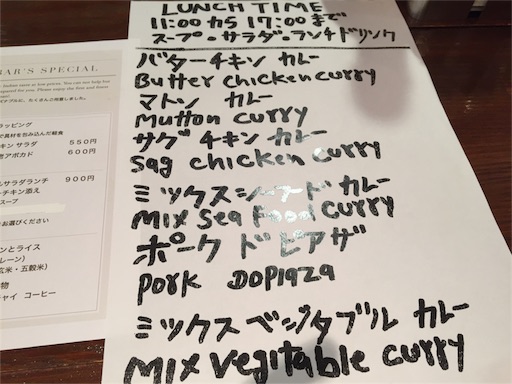 LUNCH TIME
11:00から17:00まで
スープ・サラダ・ランチドリンク
バターチキン カレー
Butter chicken curry
マトン カレー
Mutton curry
サグ チキン カレー
Sag chicken curry
ミックスシーフード カレー
Mix Sea Food curry
ポーク ドピアザ
Pork DOPIAZA
ミックスベジタブル カレー
Mix vegitable curry
BAR'S SPECIAL
ラッピング
で具材を包み込んだ軽食
キン サラダ 550円
アボカド 600円
サラダランチ 900円
ーチキン添え
スープ
お選びください
ンとライス
レーン)
玄米・五穀米)
物
チャイ コーヒー